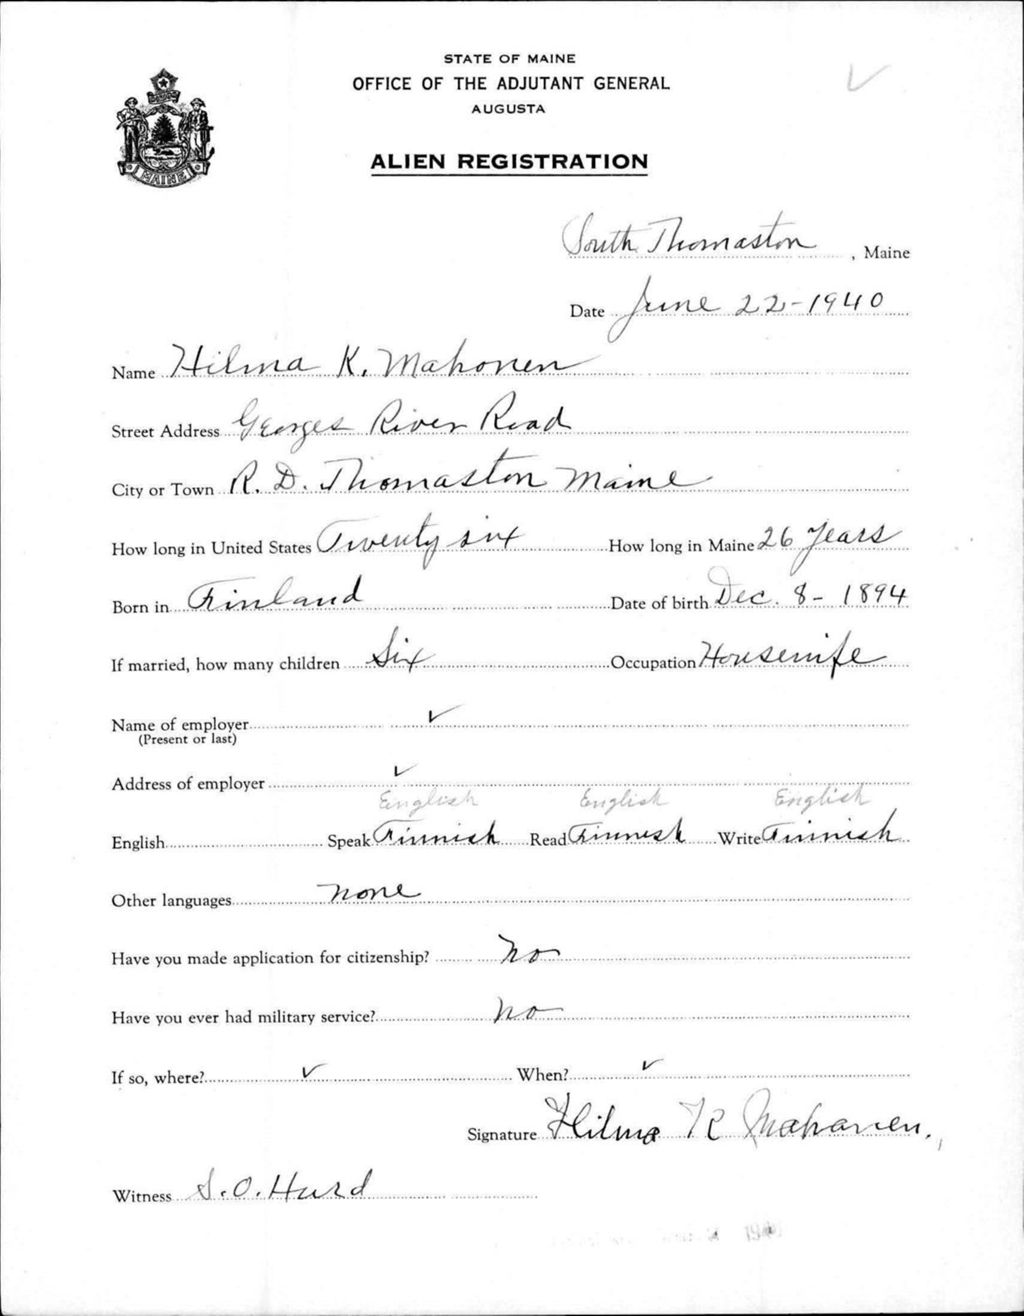 STATE OF MAINE
OFFICE OF THE ADJUTANT GENERAL
AUGUSTA
ALIEN REGISTRATION
MAINE
South Thomaston, Maine
Date June 22-1940
Name Hilma K. Mahonen
Street Address Georges River Road
City or Town R. D. Thomaston Maine
How long in United States Twenty six How long in Maine 26 Years
Born in Finland Date of birth Dec. 8 - 1894
If married, how many children Six Occupation Housewife
Name of employer ✓
(Present or last)
Address of employer ✓
English English English
English Speak Finnish Read Finnish Write Finnish
Other languages none
Have you made application for citizenship? No
Have you ever had military service? No
If so, where? ✓ When? ✓
Signature Hilma K Mahonen.
Witness S. O. Hurd